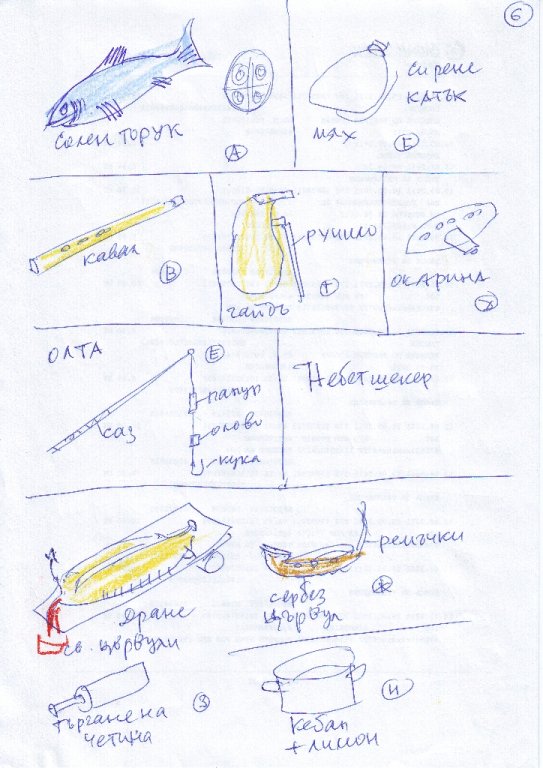 6
солен торук
А
сирене
катък
мях
Б
кавал
В
ручило
гайдъ
Г
окарина
Д
ОЛТА
Е
папур
олово
кука
саз
Небетшекер
ремъчки
Дране
св. цървули
сербез
цървул
Ж
търгане на
четина
З
кебап
+ лимон
И